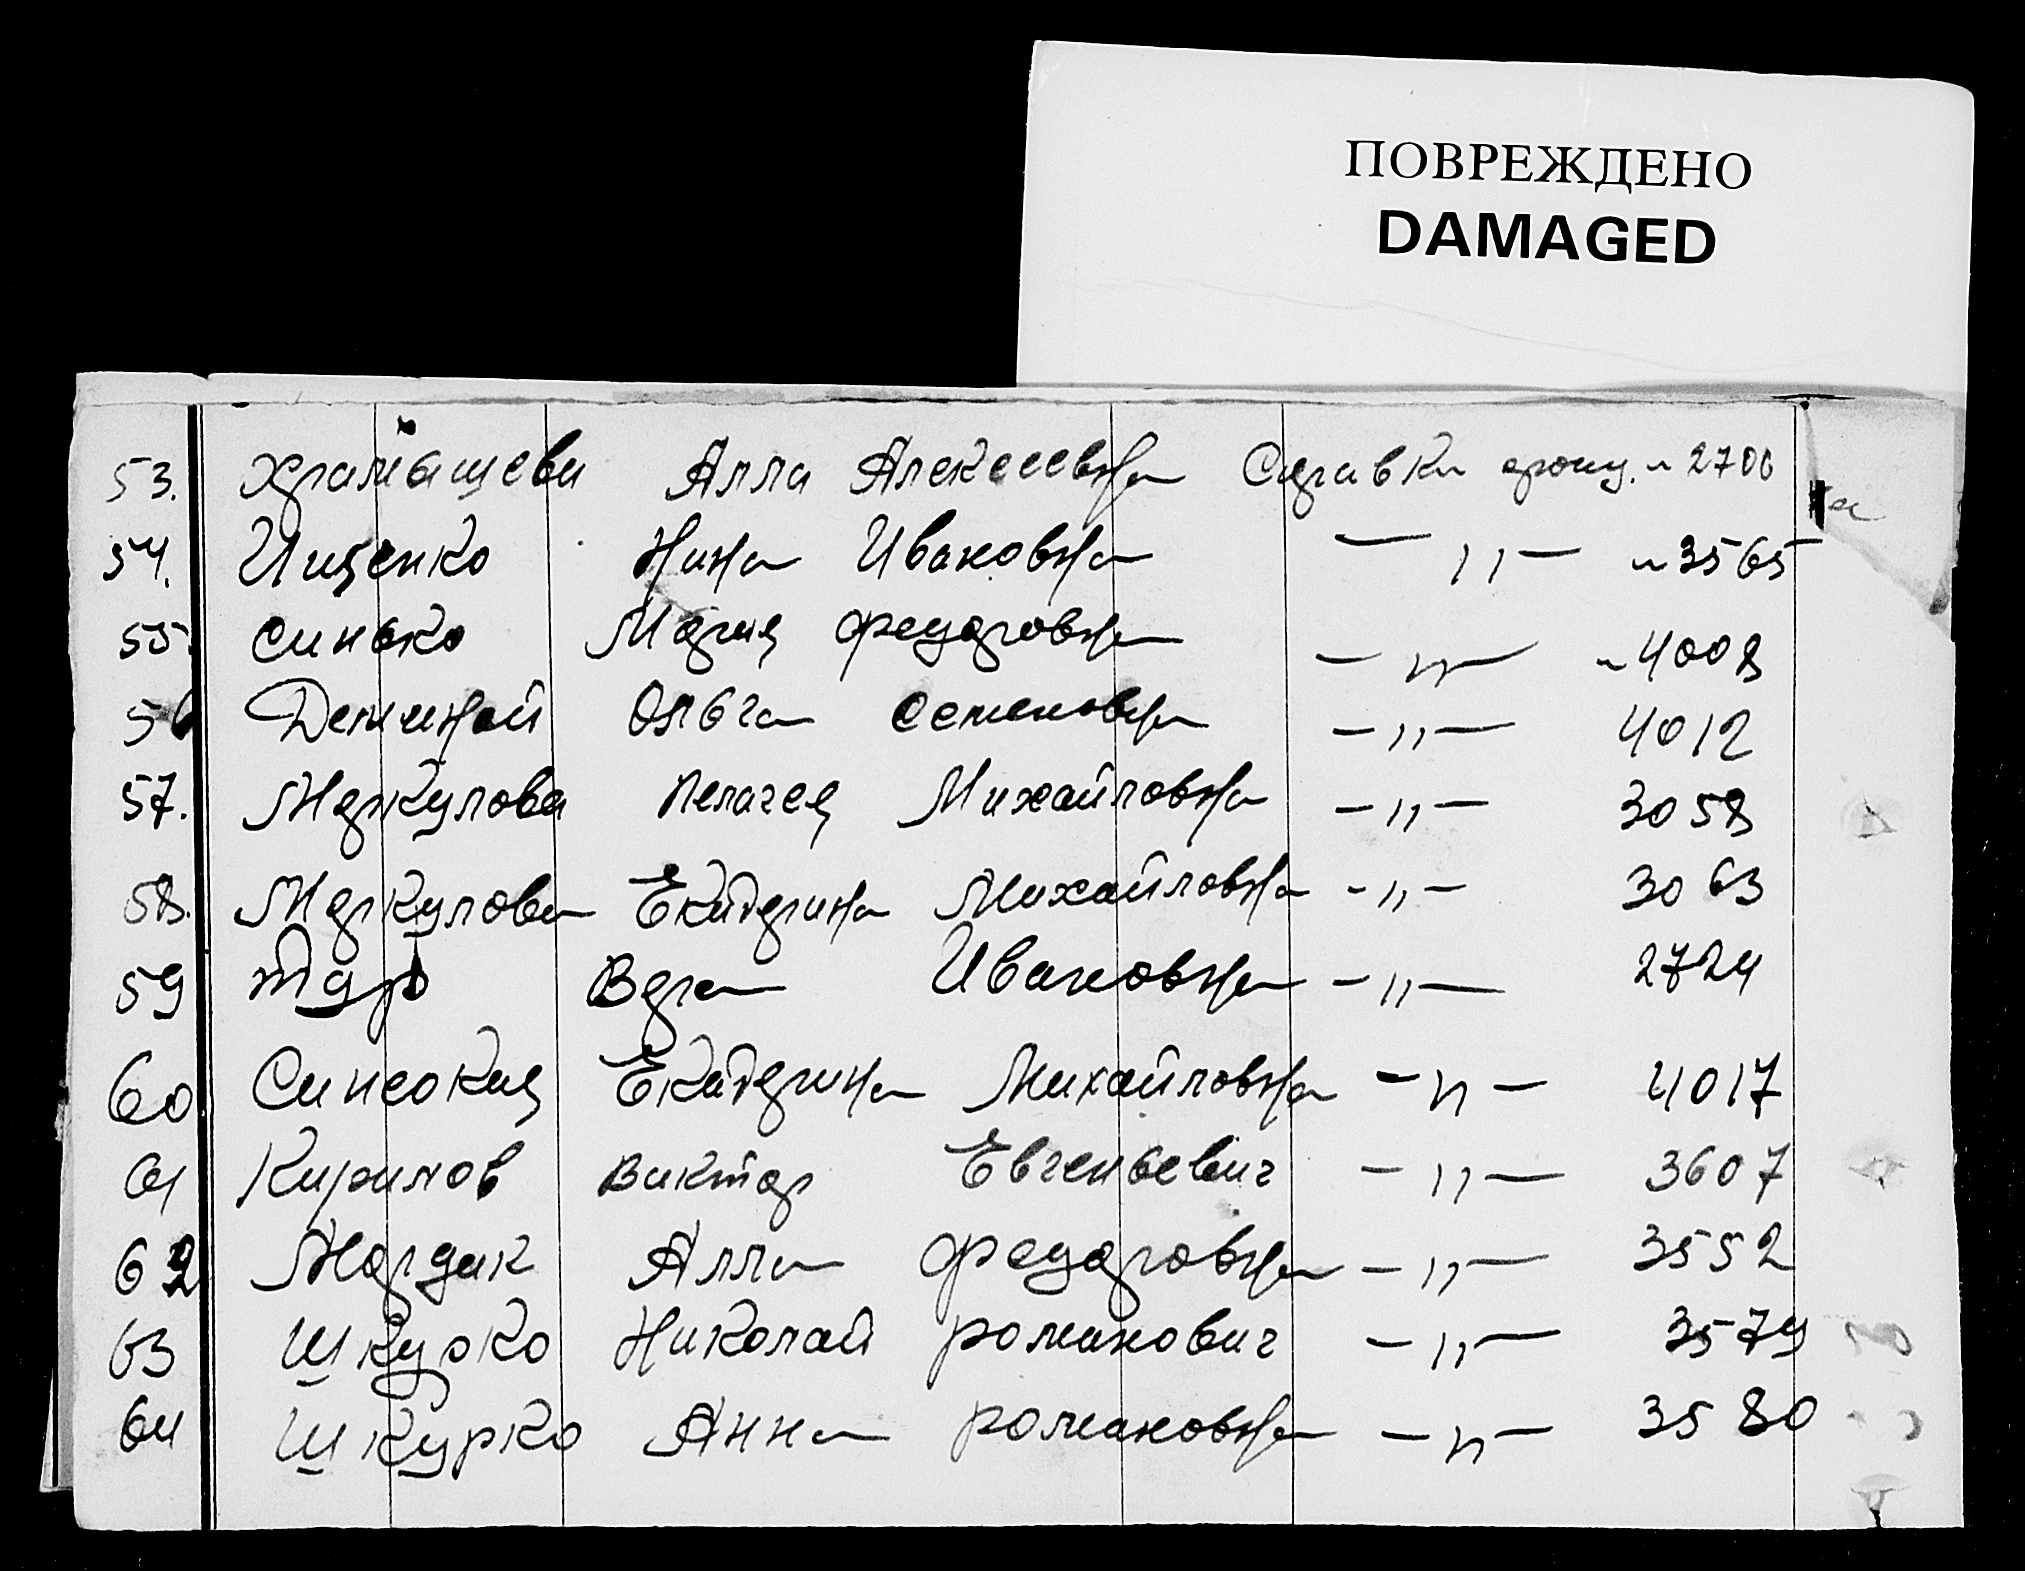 ПОВРЕЖДЕНО
DAMAGED
53. Храмащева Алла Алексеевна Справки арх. № 2700
54. Ищенко Нина Ивановна — " — № 3565
55. Синько Мария Федоровна — " — № 4008
56 Ольга Семеновна — " — 4012
57. Меркулова Пелагея Михайловна — " — 3058
58. Меркулова Екатерина Михайловна — " — 3063
59 Вера Ивановна — " — 2724
60 Синеокая Екатерина Михайловна — " — 4017
61 Кирилов Виктор Евгеньевич — " — 3607
62 Мордик Алла Федоровна — " — 3552
63 Шкурко Николай Романович — " — 3579
64 Шкурко Анна Романовна — " — 3580